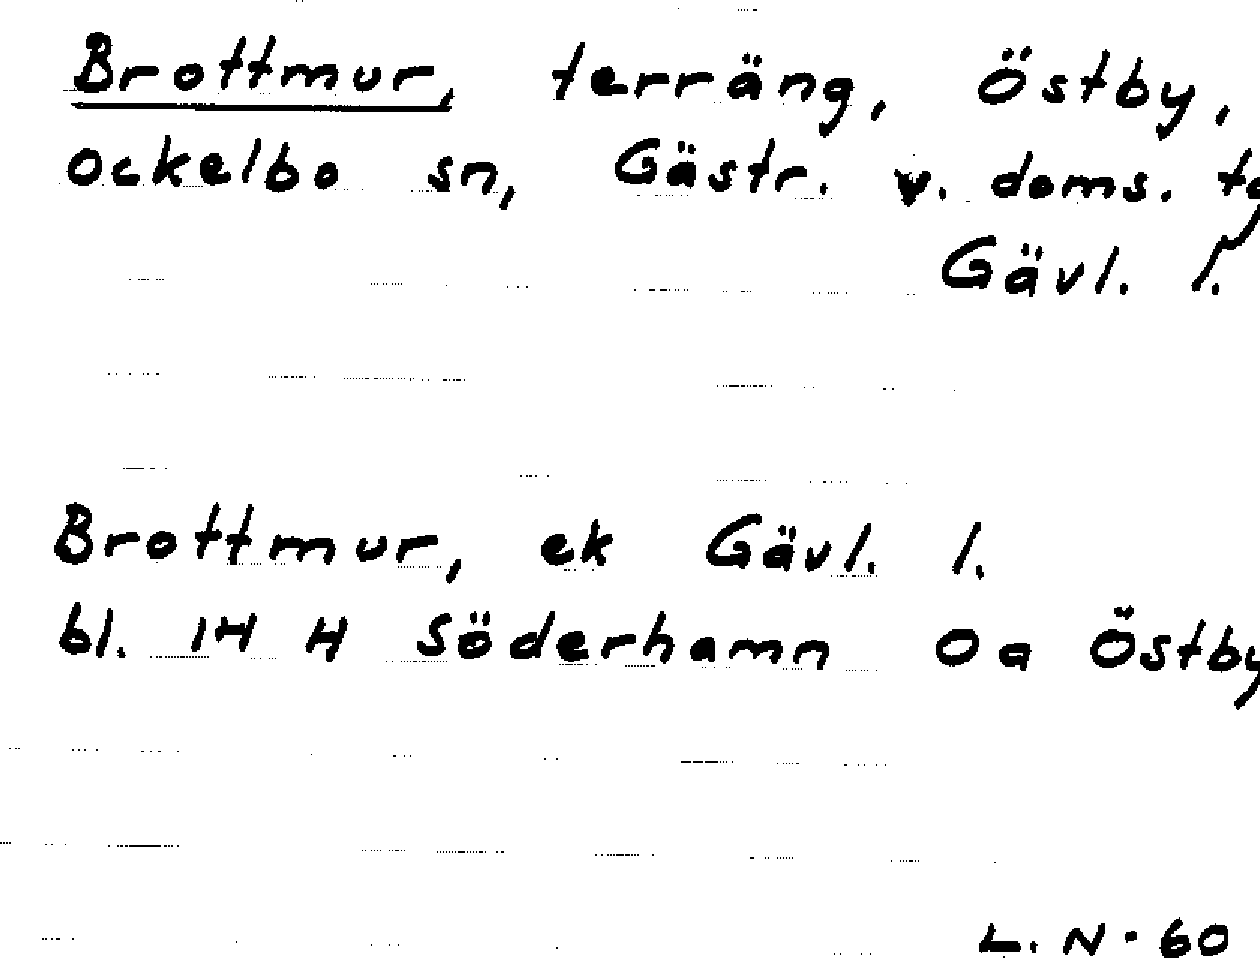 Brottmur, terräng, Östby,
Ockelbo sn, Gästr. v. doms. tg
Gävl. l.
Brottmur, ek Gävl. l.
bl. 14 H Söderhamn 0a Östby
L. N. 60